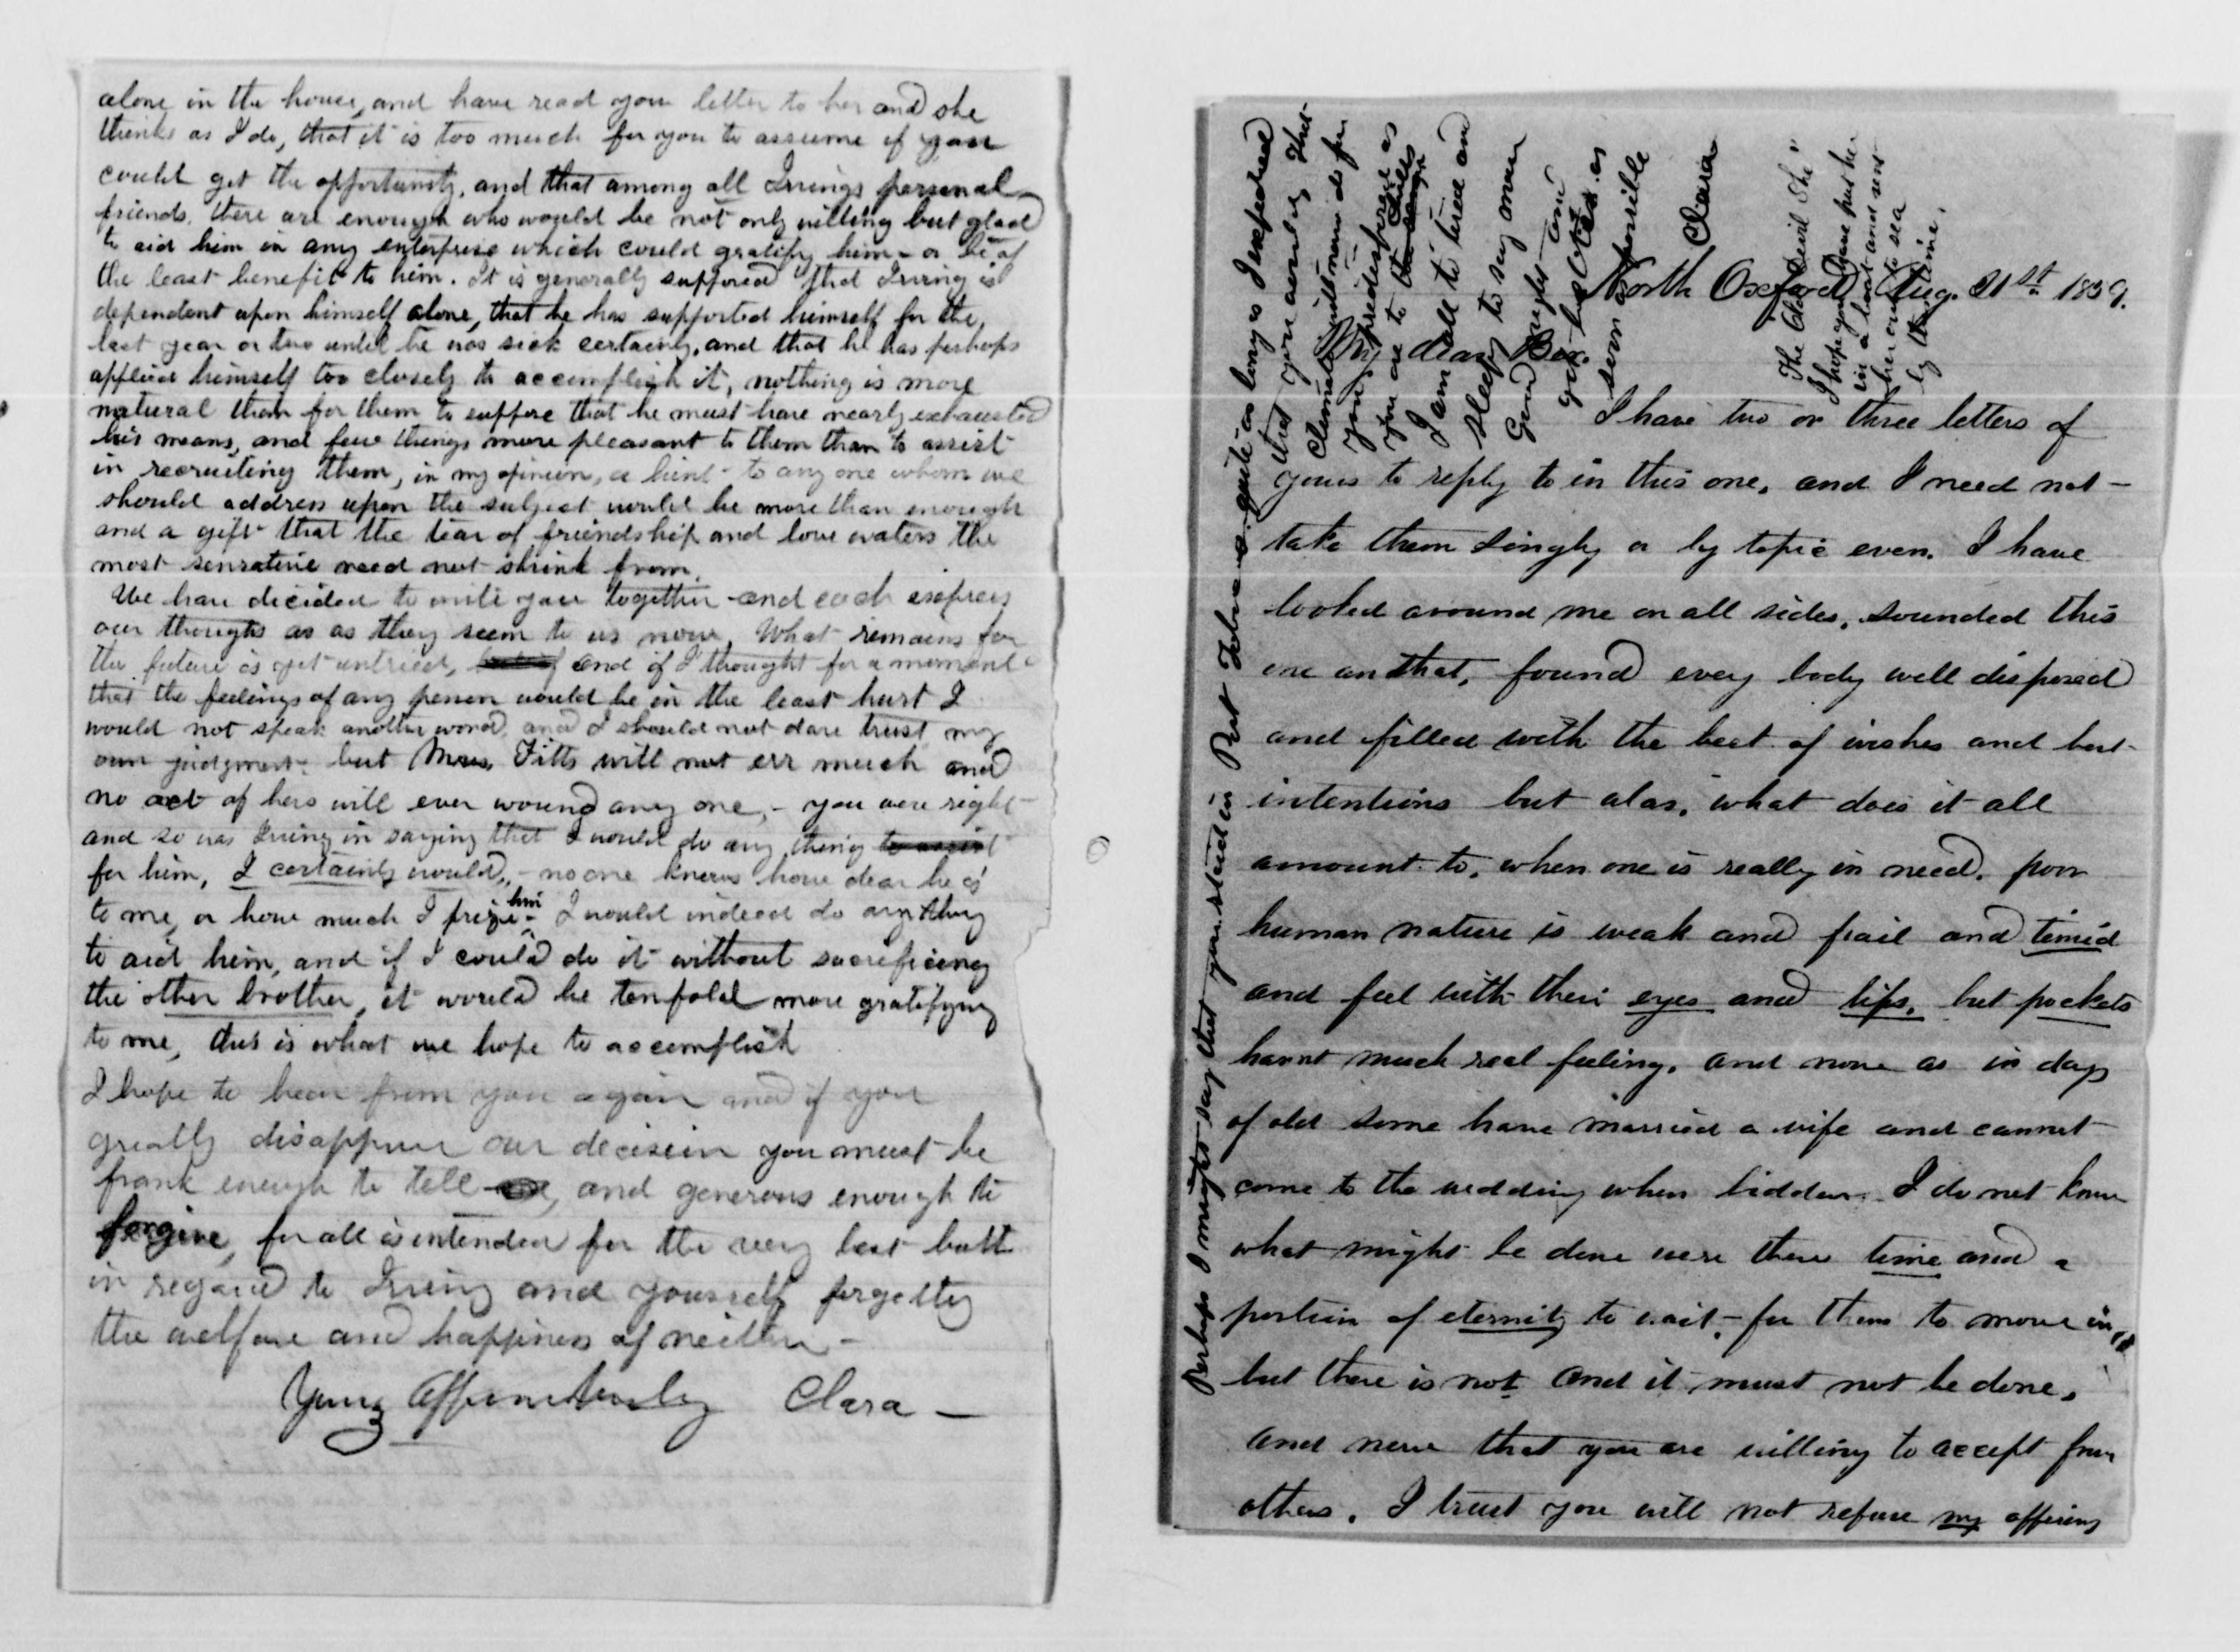 alone in the house, and have read your letter to her and she
thinks as I do, that it is too much for you to assume if you
could get the opportunity, and that among all Irvings personal
friends, there are enough who would be not only willing but glad
to aid him in any enterprise which could gratify him - or be of
the least benefit to him. It is generally supposed that Irving is
dependent upon himself alone, that he has supported himself for the
last year or two until he was sick certainly, and that he has perhaps
applied himself too closely to accomplish it, nothing is more
natural than for them to suppose that he must have nearly exhausted
his means, and few things more pleasant to them than to assist
in recruiting them, in my opinion, a hint to any one whom we
should address upon the subject would be more than enough
and a gift that the tear of friendship and love waters the
most sensative need not shrink from.
We have decided to write you together and each express
our thoughts as as they seem to us now, What remains for
the future is yet untried, and if I thought for a moment
that the feelings of any person would be in the least hurt I
would not speak another word, and I should not dare trust my
own judgment but Mrs. Fitts will not err much and
no act of hers will ever wound any one, - you were right
and so was Irving in saying that I would do any thing to assist
for him, I certainly would, - no one knows how dear he is
to me, or how much I prize him - I would indeed do anything
to aid him, and if I could do it without sacrificing
the other brother, it would be tenfold more gratifying
to me, this is what we hope to accomplish
I hope to hear from you again and if you
greatly disapprove our decision you must be
frank enough to tell and generous enough to
forgive, for all is intended for the very best both
in regard to Irving and yourself forgetting
the welfare and happiness of neither -
Yours Affectionately Clara -
North Oxford Aug. 21st. 1859.
My dear Ber.
I have two or three letters of
yours to reply to in this one, and I need not -
take them singly or by topic even. I have
looked around me on all sides, sounded this
one an that, found every body well disposed
and filled with the best of wishes and best
intentions but alas, what does it all
amount to, when one is really in need, poor
human nature is weak and frail and timid
and feel with their eyes and lips, but pockets
havnt much real feeling, and now as in days
of old some have married a wife and cannot
come to the wedding when bidden. I do not know
what might be done were there time and a
portion of eternity to wait, - for them to move in,
but there is not and it must not be done,
and now that you are willing to accept from
others, I trust you will not refuse my offering
Perhaps I might say that you staid in Port quite as long as I expected
that you would, that
Climate will now do for
you
you are to
I am all to tired and
sleepy to say more
Good night - and
get better as
soon as possible
Clara
The Old Devil She"
I hope you have put her
in a boat and sent
her out to sea
by this time.